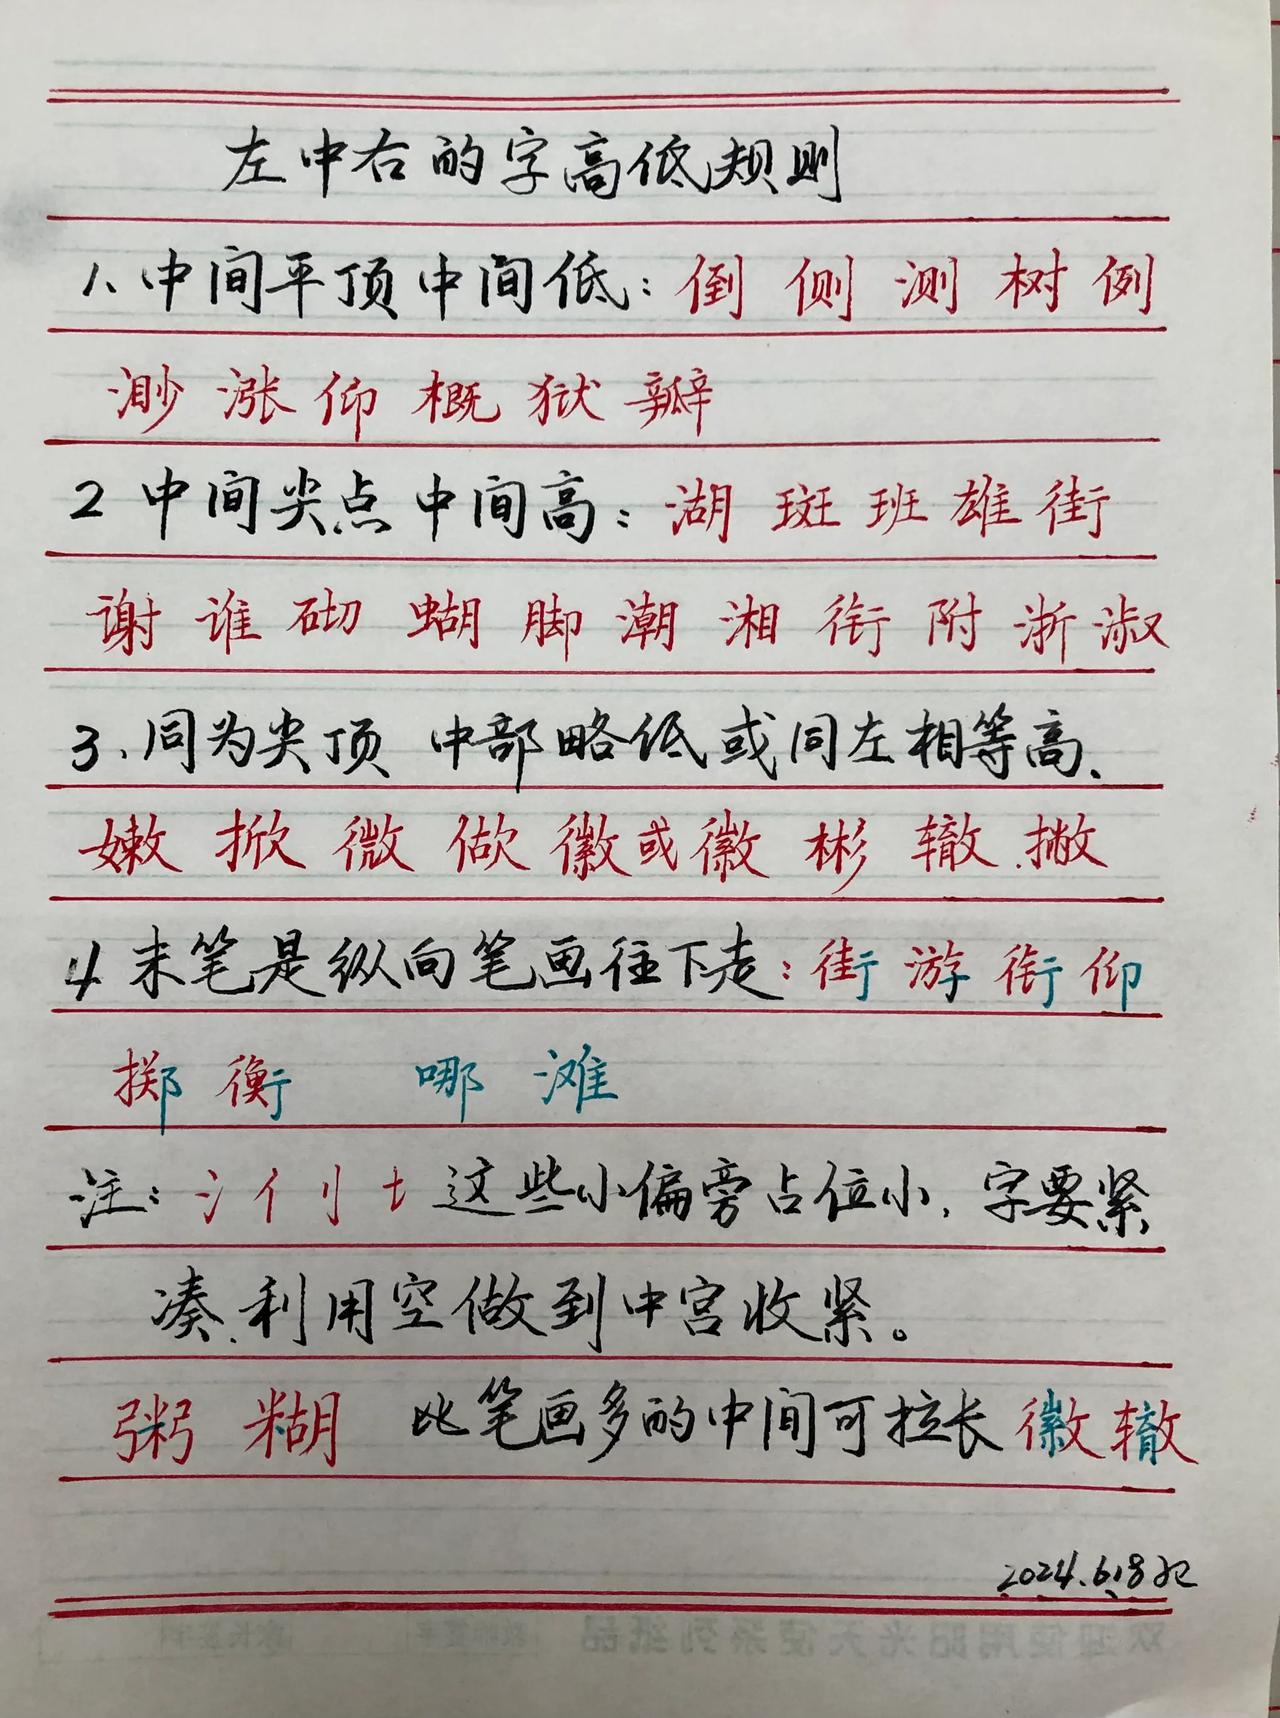 左中右的字高低规则
1、中间平顶中间低：倒 侧 测 树 例
渺 涨 仰 概 狱 瓣
2 中间尖点中间高：湖 斑 班 雄 街
谢 谁 砌 蝴 脚 潮 湘 衔 附 浙 淑
3、同为尖顶 中部略低或同左相等高、
嫩 掀 微 做 徽或徽 彬 辙 撇
4 末笔是纵向笔画往下走：街 游 衔 仰
掷 衡 哪 滩
注：氵亻刂扌这些小偏旁占位小，字要紧
凑、利用空做到中宫收紧。
粥 糊 比笔画多的中间可拉长 徽 辙
2024.6.18记
欢迎使用阳光天使系列纸品